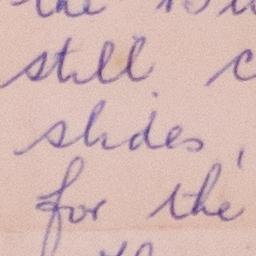 the
still
slides,
for the